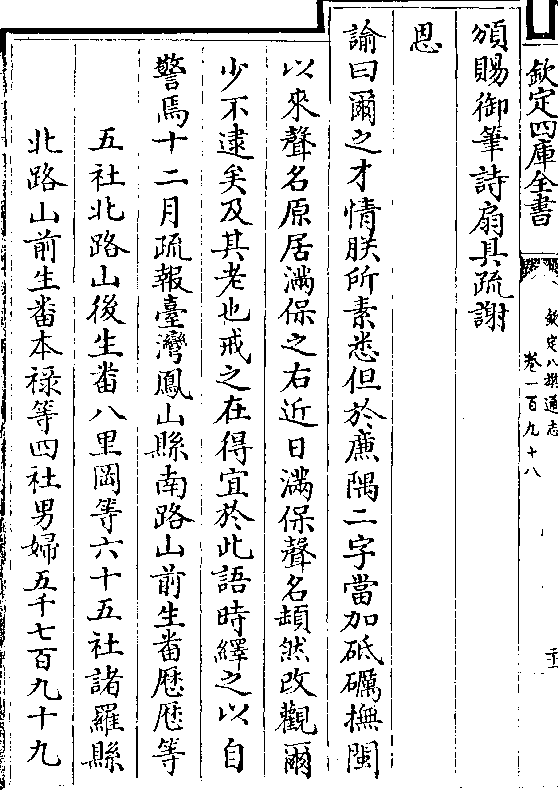 欽定四庫全書
欽定八旗通志
卷一百九十八
頒賜御筆詩扇具疏謝
恩
諭曰爾之才情朕所素悉但於廉隅二字當加砥礪撫閩
以來聲名原居滿保之右近日滿保聲名頓然改觀爾
少不逮矣及其老也戒之在得宜於此語時繹之以自
警焉十二月疏報臺灣鳳山縣南路山前生番歴歴等
五社北路山後生番八里岡等六十五社諸羅縣
北路山前生番本祿等四社男婦五千七百九十九